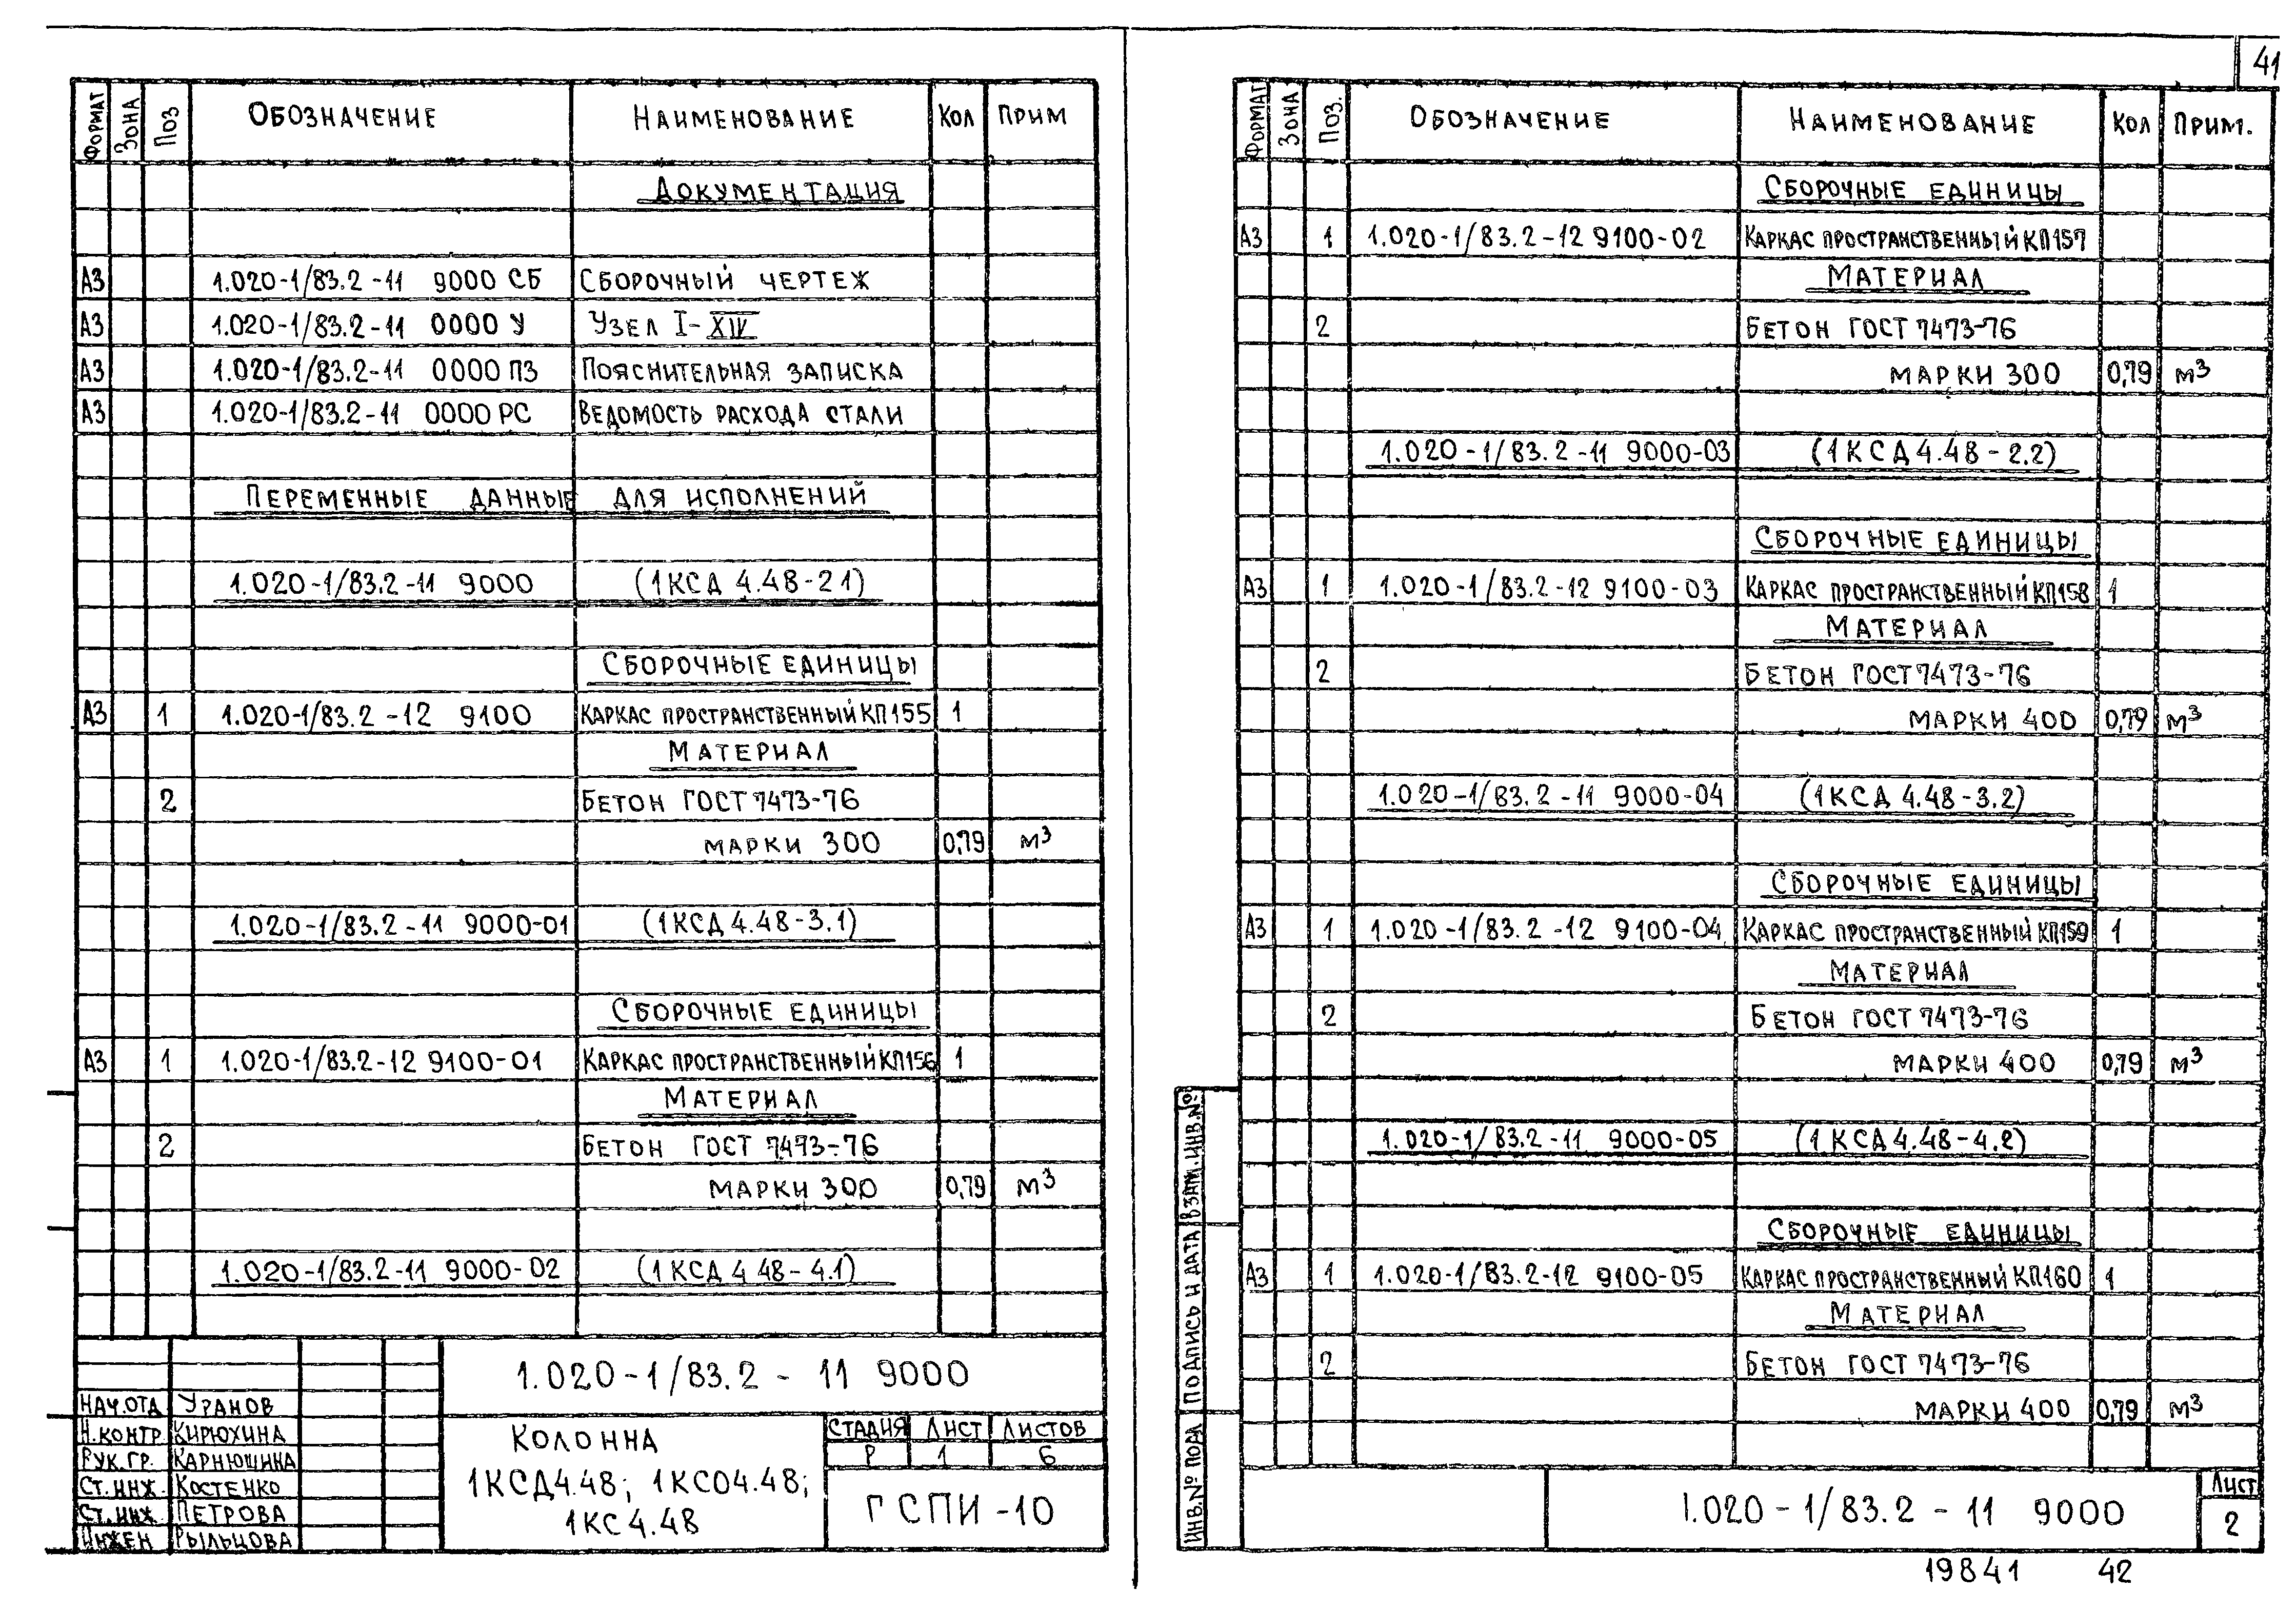 41
ФОРМАТ ЗОНА ПОЗ ОБОЗНАЧЕНИЕ НАИМЕНОВАНИЕ КОЛ ПРИМ
ДОКУМЕНТАЦИЯ
А3 1.020-1/83.2-11 9000 СБ СБОРОЧНЫЙ ЧЕРТЕЖ
А3 1.020-1/83.2-11 0000 У УЗЕЛ I-XIV
А3 1.020-1/83.2-11 0000 ПЗ ПОЯСНИТЕЛЬНАЯ ЗАПИСКА
А3 1.020-1/83.2-11 0000 РС ВЕДОМОСТЬ РАСХОДА СТАЛИ
ПЕРЕМЕННЫЕ ДАННЫЕ ДЛЯ ИСПОЛНЕНИЙ
1.020-1/83.2-11 9000 (1КСД 4.48-2 1)
СБОРОЧНЫЕ ЕДИНИЦЫ
А3 1 1.020-1/83.2-12 9100 КАРКАС ПРОСТРАНСТВЕННЫЙ КП155 1
МАТЕРИАЛ
2 БЕТОН ГОСТ 7473-76
МАРКИ 300 0,79 м³
1.020-1/83.2-11 9000-01 (1КСД 4.48-3.1)
СБОРОЧНЫЕ ЕДИНИЦЫ
А3 1 1.020-1/83.2-12 9100-01 КАРКАС ПРОСТРАНСТВЕННЫЙ КП156 1
МАТЕРИАЛ
2 БЕТОН ГОСТ 7473-76
МАРКИ 300 0,79 м³
1.020-1/83.2-11 9000-02 (1КСД 4 48-4.1)
1.020-1/83.2-11 9000
НАЧ.ОТД УРАНОВ
Н.КОНТР КИРЮХИНА
РУК.ГР. КАРНЮШИНА
СТ.ИНЖ. КОСТЕНКО
СТ.ИНЖ. ПЕТРОВА
ИНЖЕН РЫЛЬЦОВА
КОЛОННА
1КСД4.48; 1КСО4.48;
1КС4.48
СТАДИЯ ЛИСТ ЛИСТОВ
Р 1 6
ГСПИ-10
ФОРМАТ ЗОНА ПОЗ. ОБОЗНАЧЕНИЕ НАИМЕНОВАНИЕ КОЛ ПРИМ.
СБОРОЧНЫЕ ЕДИНИЦЫ
А3 1 1.020-1/83.2-12 9100-02 КАРКАС ПРОСТРАНСТВЕННЫЙ КП157
МАТЕРИАЛ
2 БЕТОН ГОСТ 7473-76
МАРКИ 300 0,79 м³
1.020-1/83.2-11 9000-03 (1КСД4.48-2.2)
СБОРОЧНЫЕ ЕДИНИЦЫ
А3 1 1.020-1/83.2-12 9100-03 КАРКАС ПРОСТРАНСТВЕННЫЙ КП158 1
МАТЕРИАЛ
2 БЕТОН ГОСТ 7473-76
МАРКИ 400 0,79 м³
1.020-1/83.2-11 9000-04 (1КСД 4.48-3.2)
СБОРОЧНЫЕ ЕДИНИЦЫ
А3 1 1.020-1/83.2-12 9100-04 КАРКАС ПРОСТРАНСТВЕННЫЙ КП159 1
МАТЕРИАЛ
2 БЕТОН ГОСТ 7473-76
МАРКИ 400 0,79 м³
1.020-1/83.2-11 9000-05 (1КСД4.48-4.2)
СБОРОЧНЫЕ ЕДИНИЦЫ
А3 1 1.020-1/83.2-12 9100-05 КАРКАС ПРОСТРАНСТВЕННЫЙ КП160 1
МАТЕРИАЛ
2 БЕТОН ГОСТ 7473-76
МАРКИ 400 0,79 м³
ИНВ.№ ПОДЛ ПОДПИСЬ И ДАТА ВЗАМ.ИНВ.№
1.020-1/83.2-11 9000
ЛИСТ
2
19841 42